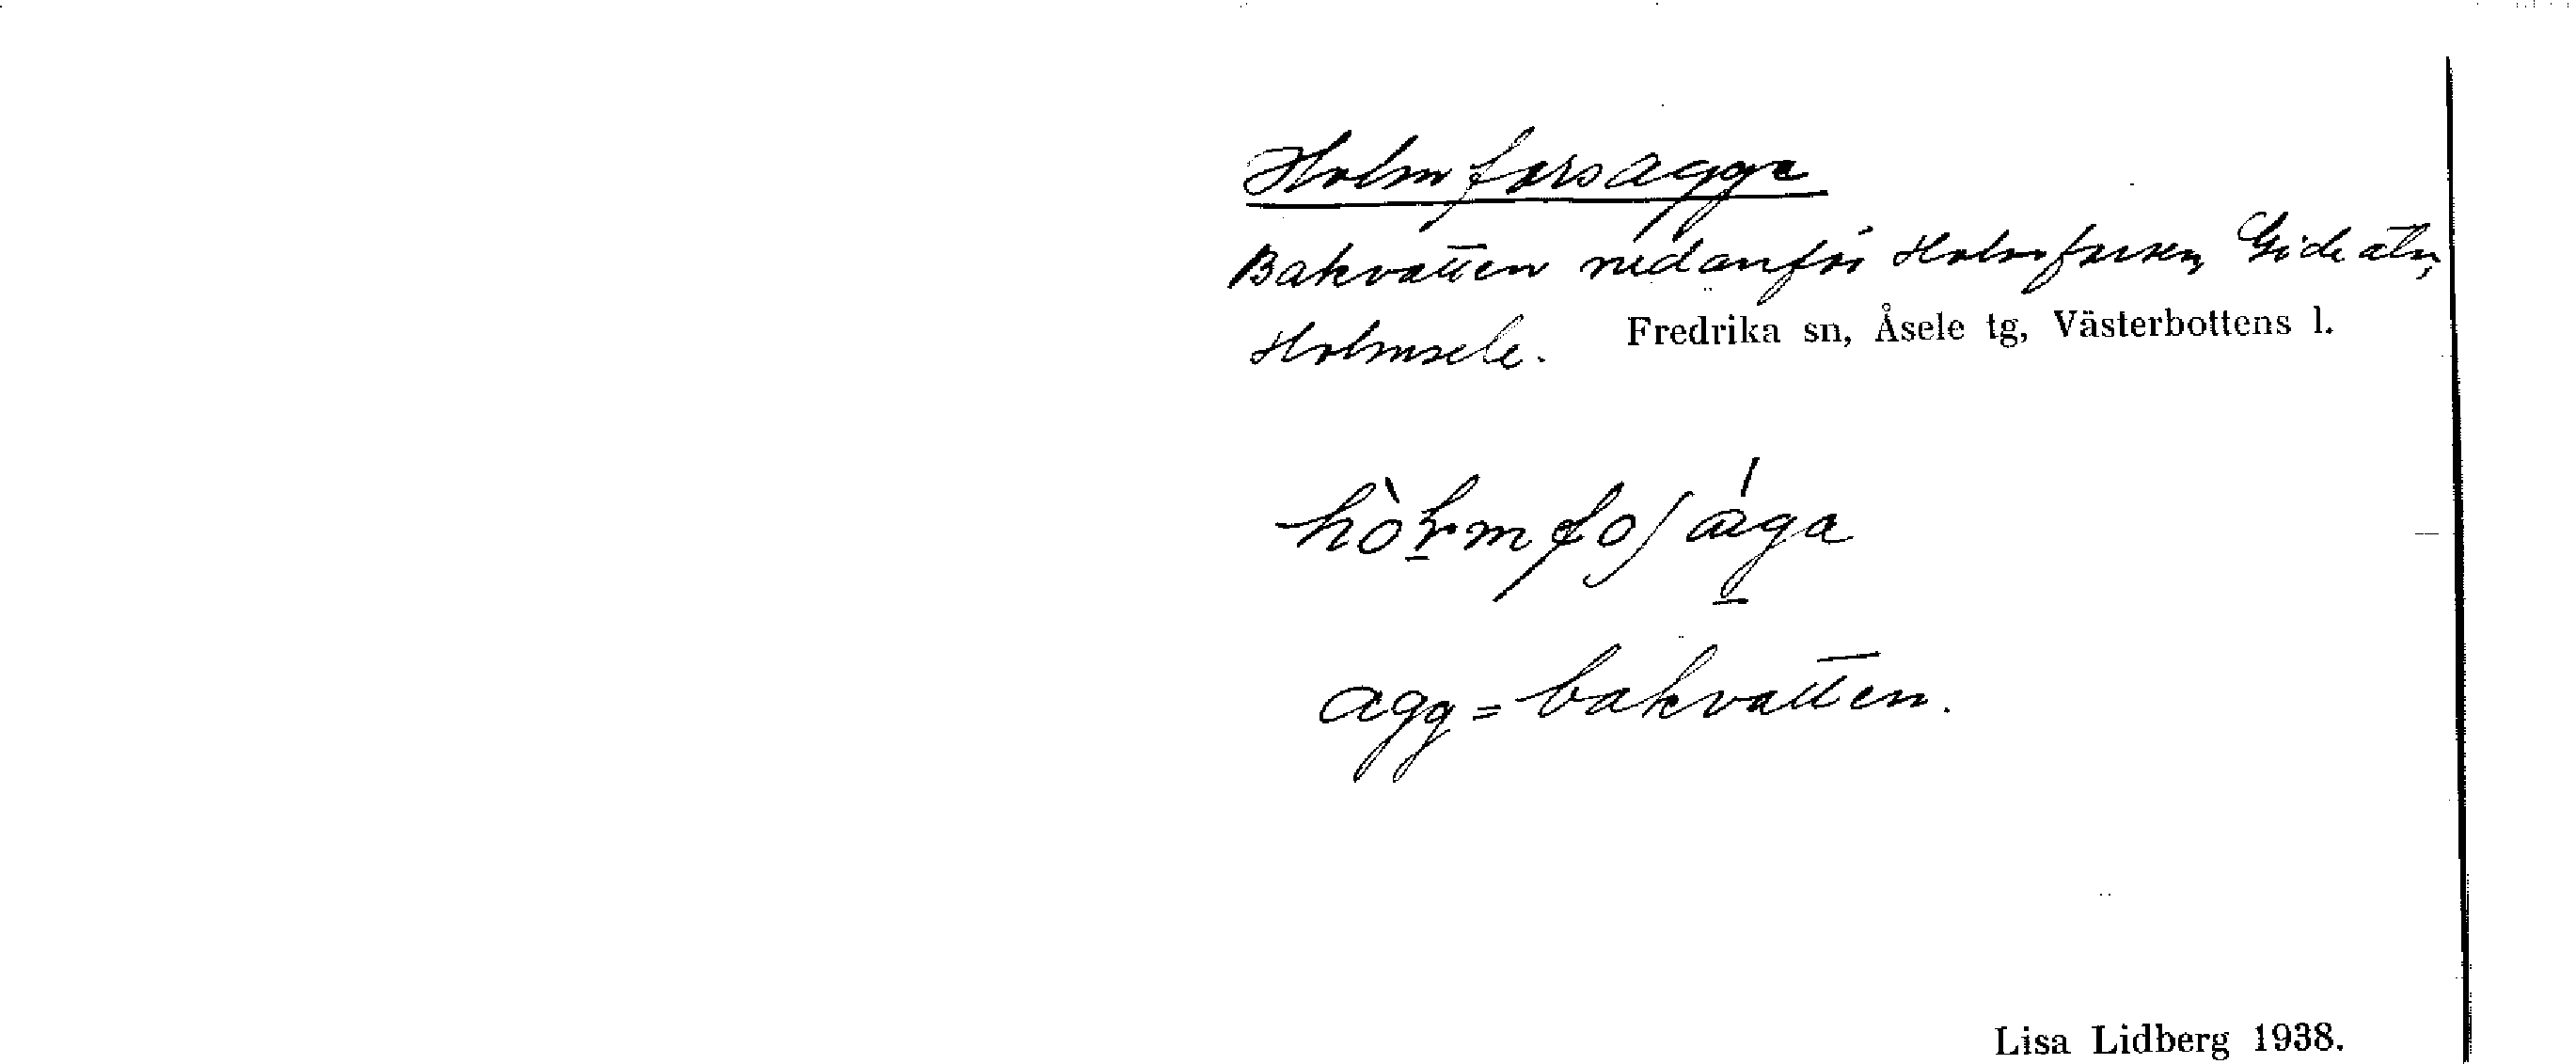 Holmforsagga
Bakvatten nedanför Holmforsen, Gideätn,
Holmsele. Fredrika sn, Åsele tg, Västerbottens l.
agg = bakvatten.
Lisa Lidberg 1938.